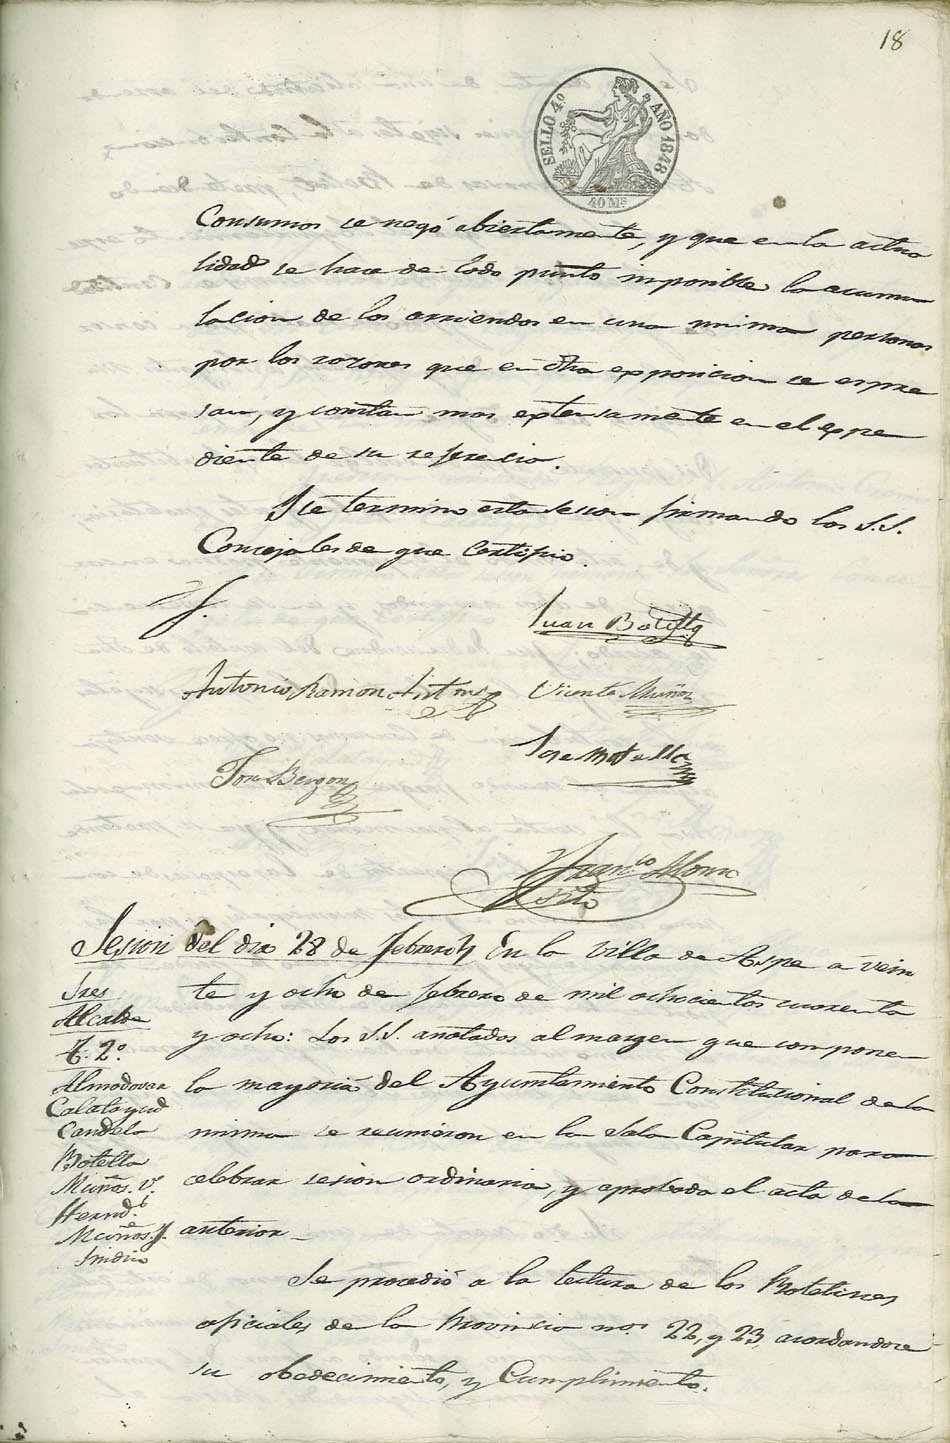 18
SELLO 4º AÑO 1848
40 Ms
Consumos se negó abiertamente, y que en la actua
lidad se hace de todo punto imposible la acumu
lacion de los arriendos en una misma persona
por los razones que en dha exposicion se espre
san, y constan mas extensamente en el expe
diente de su referencia.
Y se termino esta sesion firmando los S.S.
Concejales de que certifico.
Juan Botella
Antonio Ramon
Vicente Muñoz
Jose Botella
Franco Alonso
Srio
Sesion del dia 28 de febrero En la Villa de Aspe á vein
te y ocho de febrero de mil ochocientos cuarenta
y ocho: Los S.S. anotados al margen que componen
la mayoria del Ayuntamiento Constitucional de la
misma se reunieron en la Sala Capitular para
celebrar sesion ordinaria, y aprobada el acta de la
anterior
Sres
Alcalde
T. 2º
Almodovar
Calatayud
Candela
Botella
Muños. V.
Hernd.
Muños. J.
Sindico
Se procedió a la lectura de los Boletines
oficiales de la Provincia nos 22, y 23 acordandose
su obedecimiento, y Cumplimiento.